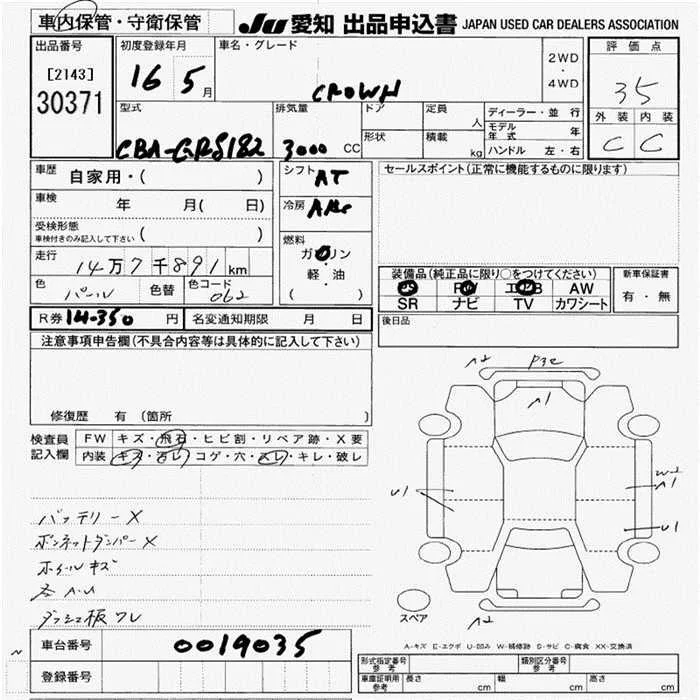 車内保管・守衛保管 JU 愛知 出品申込書 JAPAN USED CAR DEALERS ASSOCIATION
出品番号 初度登録年月 車名・グレード 2WD・4WD 評価点
[2143] 30371 16 5月 CROWN 35
型式 排気量 ドア 定員 人 ディーラー・並行 外装 内装
CBA-GRS182 3000 CC 形状 積載 kg モデル年式 年 C C
ハンドル 左・右
車歴 自家用・( ) シフト AT セールスポイント(正常に機能するものに限ります)
車検 年 月( 日) 冷房
受検形態 車検付きのみ記入して下さい ( ) 燃料 ガソリン
走行 14万7千891km 軽・油
色 パール 色替 色コード 062 ( )
装備品(純正品に限り○をつけてください) 新車保証書
PS PW エアB AW 有・無
SR ナビ TV カワシート
R券 14-350円 名変通知期限 月 日 後日品
注意事項申告欄(不具合内容等は具体的に記入して下さい)
修復歴 有(箇所 )
検査員記入欄 FW キズ・飛石・ヒビ割・リペア跡・X要
内装 キズ・汚レ・コゲ・穴・スレ・キレ・破レ
バッテリーX
ボンネットダンパーX
ホイールキズ
各A.U
ダッシュ板ワレ
A2 P3e
A1
U1 W2 A1
U1
A2
スペア
A-キズ E-エクボ U-凹み W-補修跡 S-サビ C-腐食 XX-交換済
車台番号 0019035
登録番号
形式指定番号 参考 類別区分番号 参考
車庫証明用 参考 長さ cm 幅 cm 高さ cm